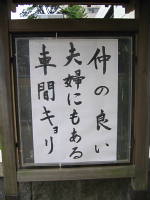 仲の良い
夫婦にもある
車間キョリ